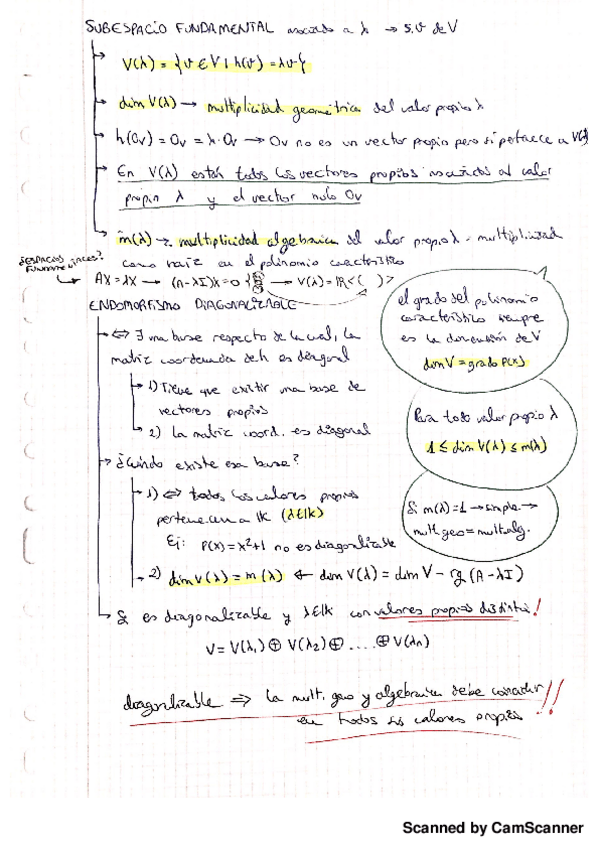 SUBESPACIO FUNDAMENTAL asociado a λ → s.v de V
V(λ) = {v ∈ V | h(v) = λv}
dim V(λ) → multiplicidad geométrica del valor propio λ
h(0v) = 0v = λ·0v → 0v no es un vector propio pero si pertenece a V(λ)
En V(λ) están todos los vectores propios asociados al valor
propio λ y el vector nulo 0v
m(λ) → multiplicidad algebraica del valor propio λ = multiplicidad
como raíz en el polinomio característico
¿ESPACIOS
FUNDAMENTALES?
AX = λX → (A-λI)X = 0 → V(λ) = IR<( )>
el grado del polinomio
característico siempre
es la dimensión de V
dim V = grado P(x)
ENDOMORFISMO DIAGONALIZABLE
⇔ ∃ una base respecto de la cual, la
matriz coordenada de h es diagonal
1) Tiene que existir una base de
vectores propios
2) La matriz coord. es diagonal
Para todo valor propio λ
1 ≤ dim V(λ) ≤ m(λ)
¿Cuándo existe esa base?
1) ⇔ todos los valores propios
pertenecen a IK (λ∈IK)
Ej: P(x) = x²+1 no es diagonalizable
Si m(λ)=1 → simple →
mult geo = mult alg.
2) dim V(λ) = m(λ) ← dim V(λ) = dim V - rg (A-λI)
Si es diagonalizable y λ∈IK con valores propios distintos!
V = V(λ₁) ⊕ V(λ₂) ⊕ .... ⊕ V(λn)
diagonalizable ⇒ la mult. geo y algebraica debe coincidir
en todos sus valores propios!!
Scanned by CamScanner